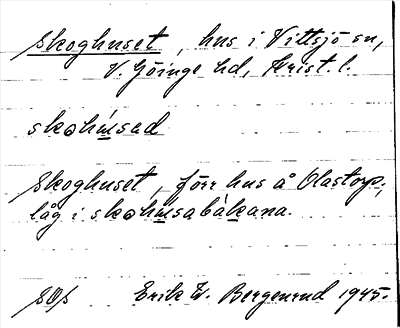 Skoghuset, hus i Vittsjö sn,
V. Göinge hd, Krist. l.
skohúsad
Skoghuset, förr hus å Olastorp;
låg i skohúsabàkana.
SOS Erik W. Bergenrud 1945.